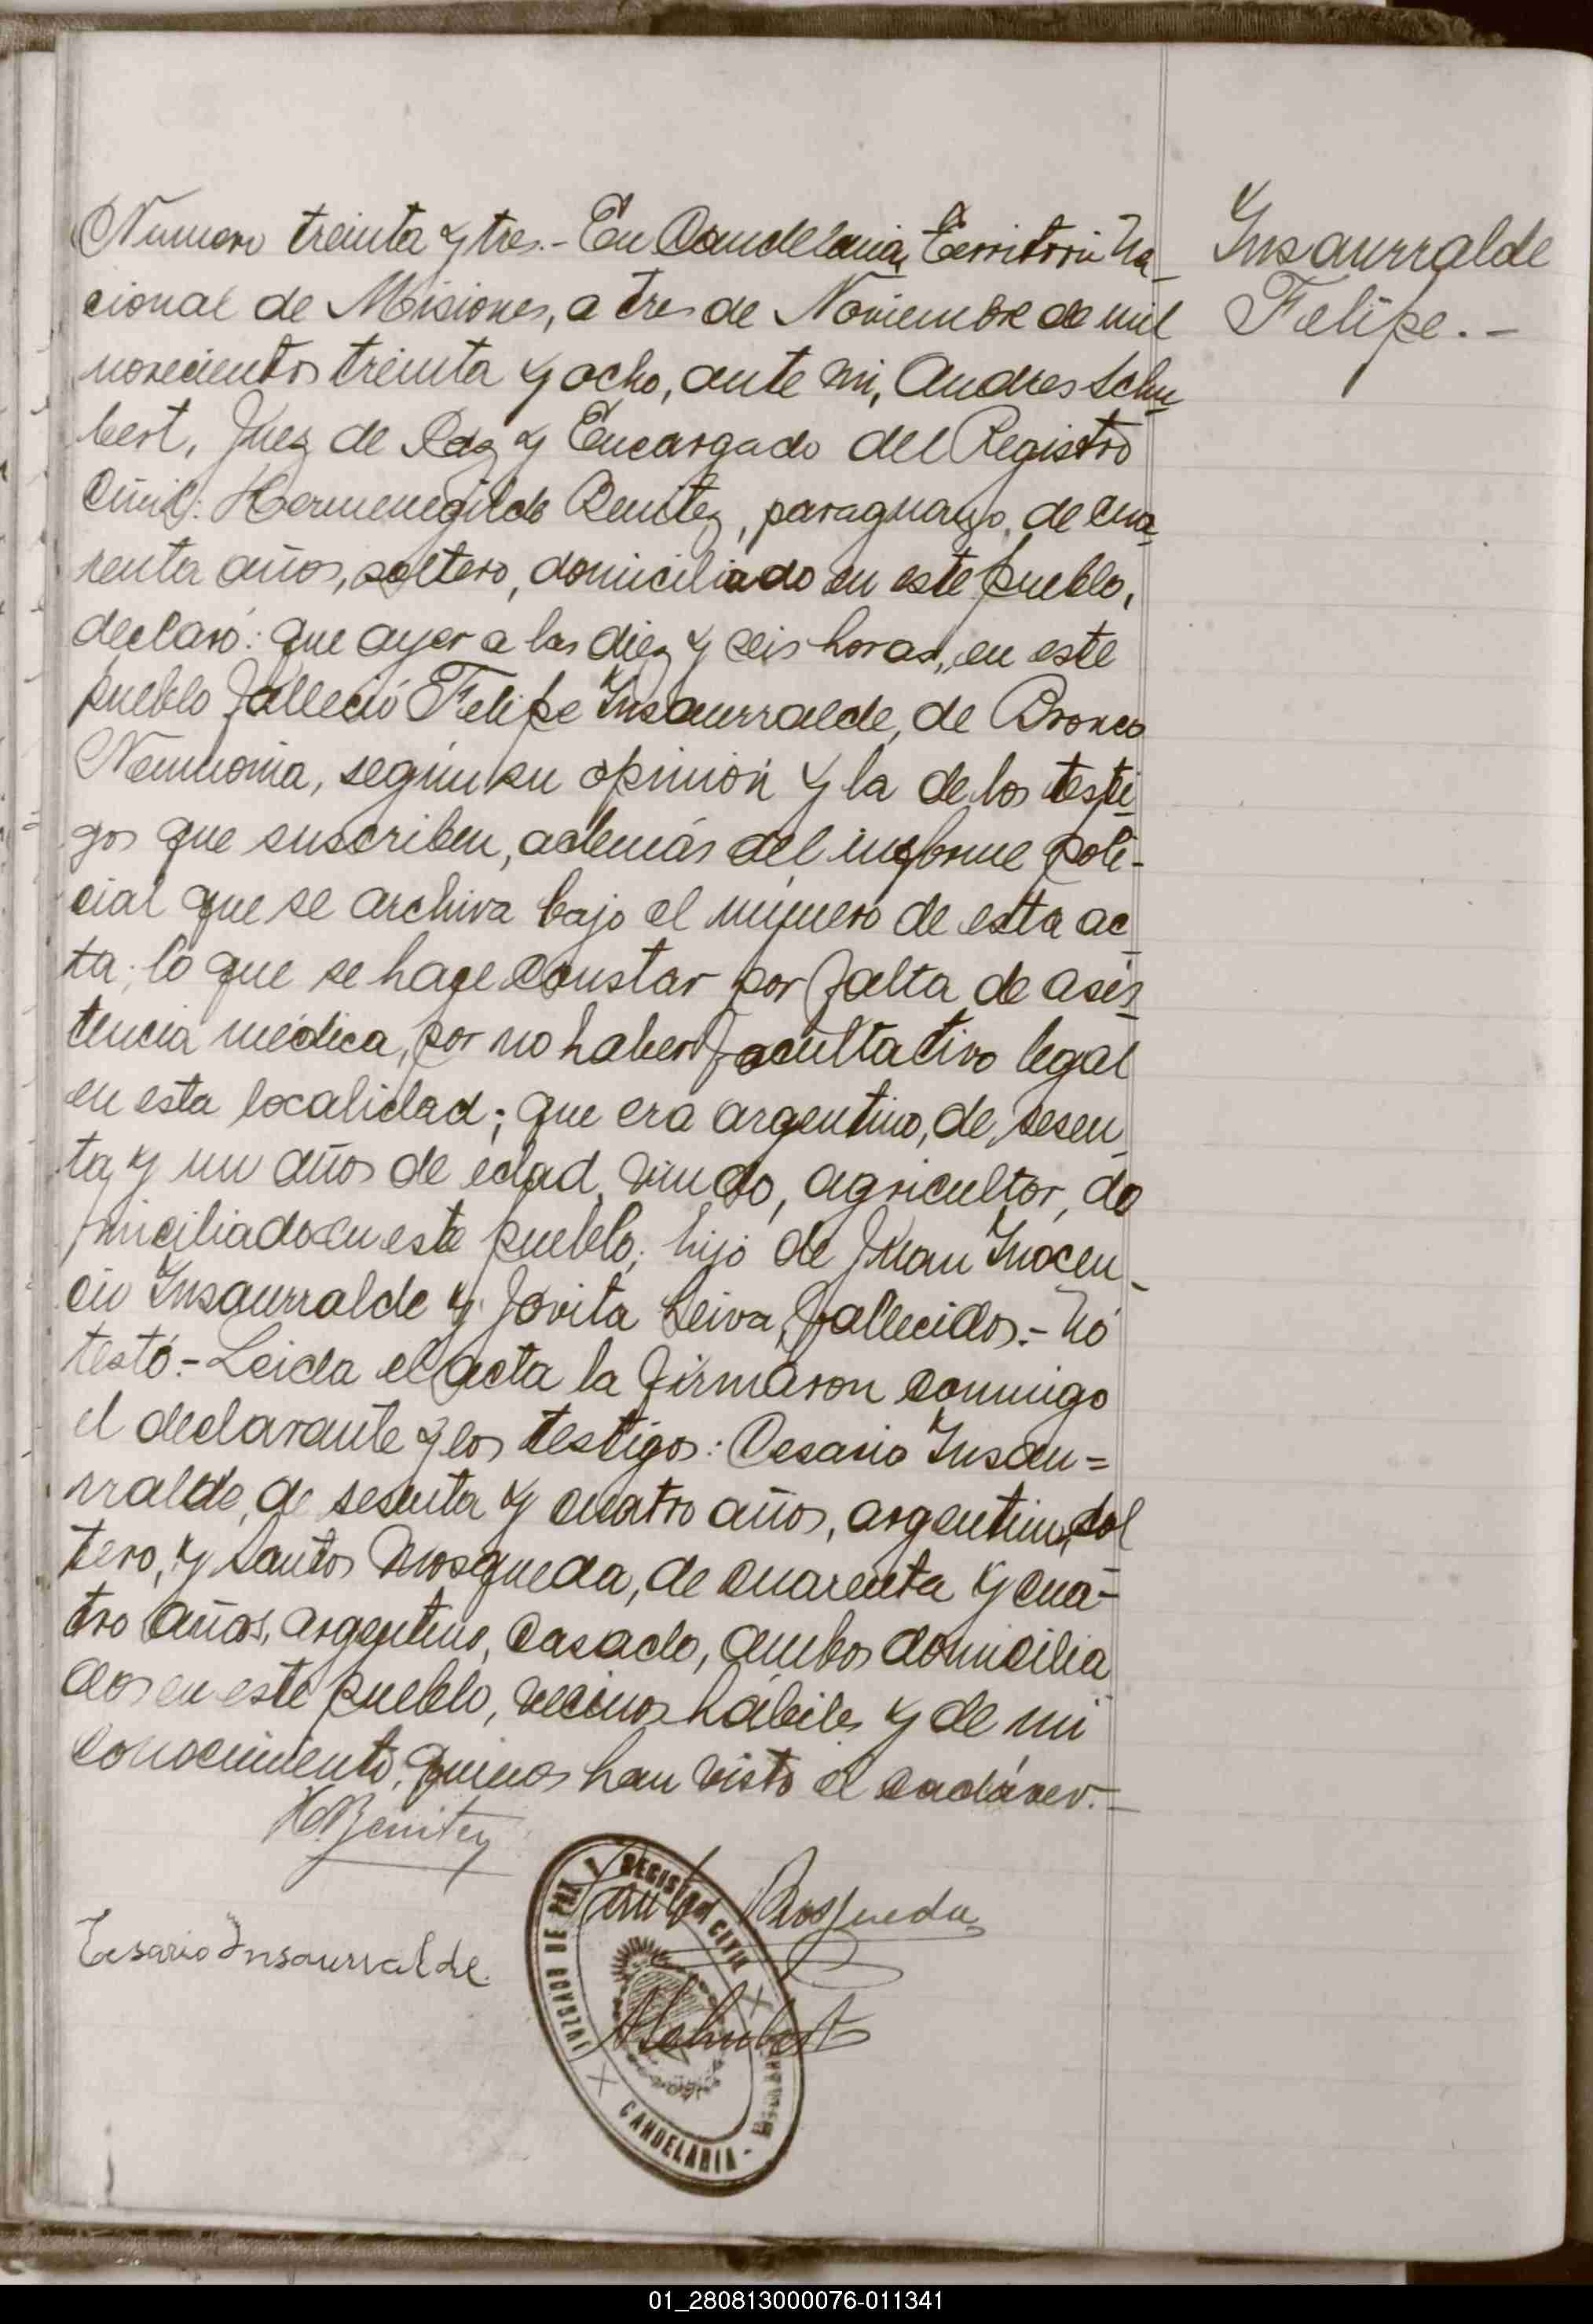 Numero treinta y tres.- En Candelaria, Territorio Na-
cional de Misiones, a tres de Noviembre de mil
novecientos treinta y ocho, ante mi, Andres Schu-
bert, Juez de Paz y Encargado del Registro
Civil: Hermenegildo Benitez, paraguayo, de cua-
renta años, soltero, domiciliado en este pueblo,
declaró: que ayer a las diez y seis horas, en este
pueblo falleció Felipe Insaurralde, de Bronco
Neumonia, según su opinión y la de los testi-
gos que suscriben, además del informe poli-
cial que se archiva bajo el número de esta ac-
ta; lo que se hace constar por falta de asis-
tencia médica, por no haber facultativo legal
en esta localidad; que era argentino, de sesen-
ta y un años de edad, viudo, agricultor, do
miciliado en este pueblo; hijo de Juan Inocen-
cio Insaurralde y Jovita Leiva, fallecidos.- No
testó.- Leida el acta la firmaron conmigo
el declarante y los testigos: Cesario Insau=
rralde, de sesenta y cuatro años, argentino, sol
tero, y Santos Mosqueda, de cuarenta y cua-
tro años, argentino, casado, ambos domicilia
dos en este pueblo, vecinos hábiles y de mi
conocimiento, quienes han visto el cadáver.-
Insaurralde
Felipe.-
H Benitez
Mosqueda
Cesario Insaurralde.
ASchubert
JUZGADO DE PAZ Y REGISTRO CIVIL
CANDELARIA -
01_280813000076-011341